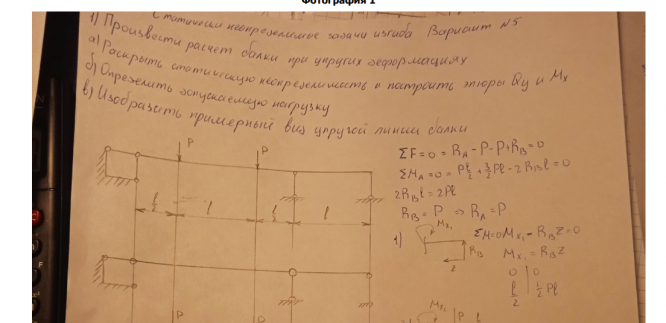 Фотография 1
Статически неопределимые задачи изгиба Вариант №5
1) Произвести расчет балки при упругих деформациях
а) Раскрыть статическую неопределимость и построить эпюры Qy и Mx
б) Определить допускаемую нагрузку
в) Изобразить примерный вид упругой линии балки
P P
ΣF=0 = R_A - P - P + R_B = 0
ΣM_A = 0 = P l/2 + 3/2 Pl - 2R_B l = 0
2R_B l = 2Pl
R_B = P ⇒ R_A = P
l/2 l l/2 l
1) Mx₁ R_B z
ΣM=0 Mx₁ - R_B z = 0
Mx₁ = R_B z
0 | 0
l/2 | 1/2 Pl
P
Mx₁ P